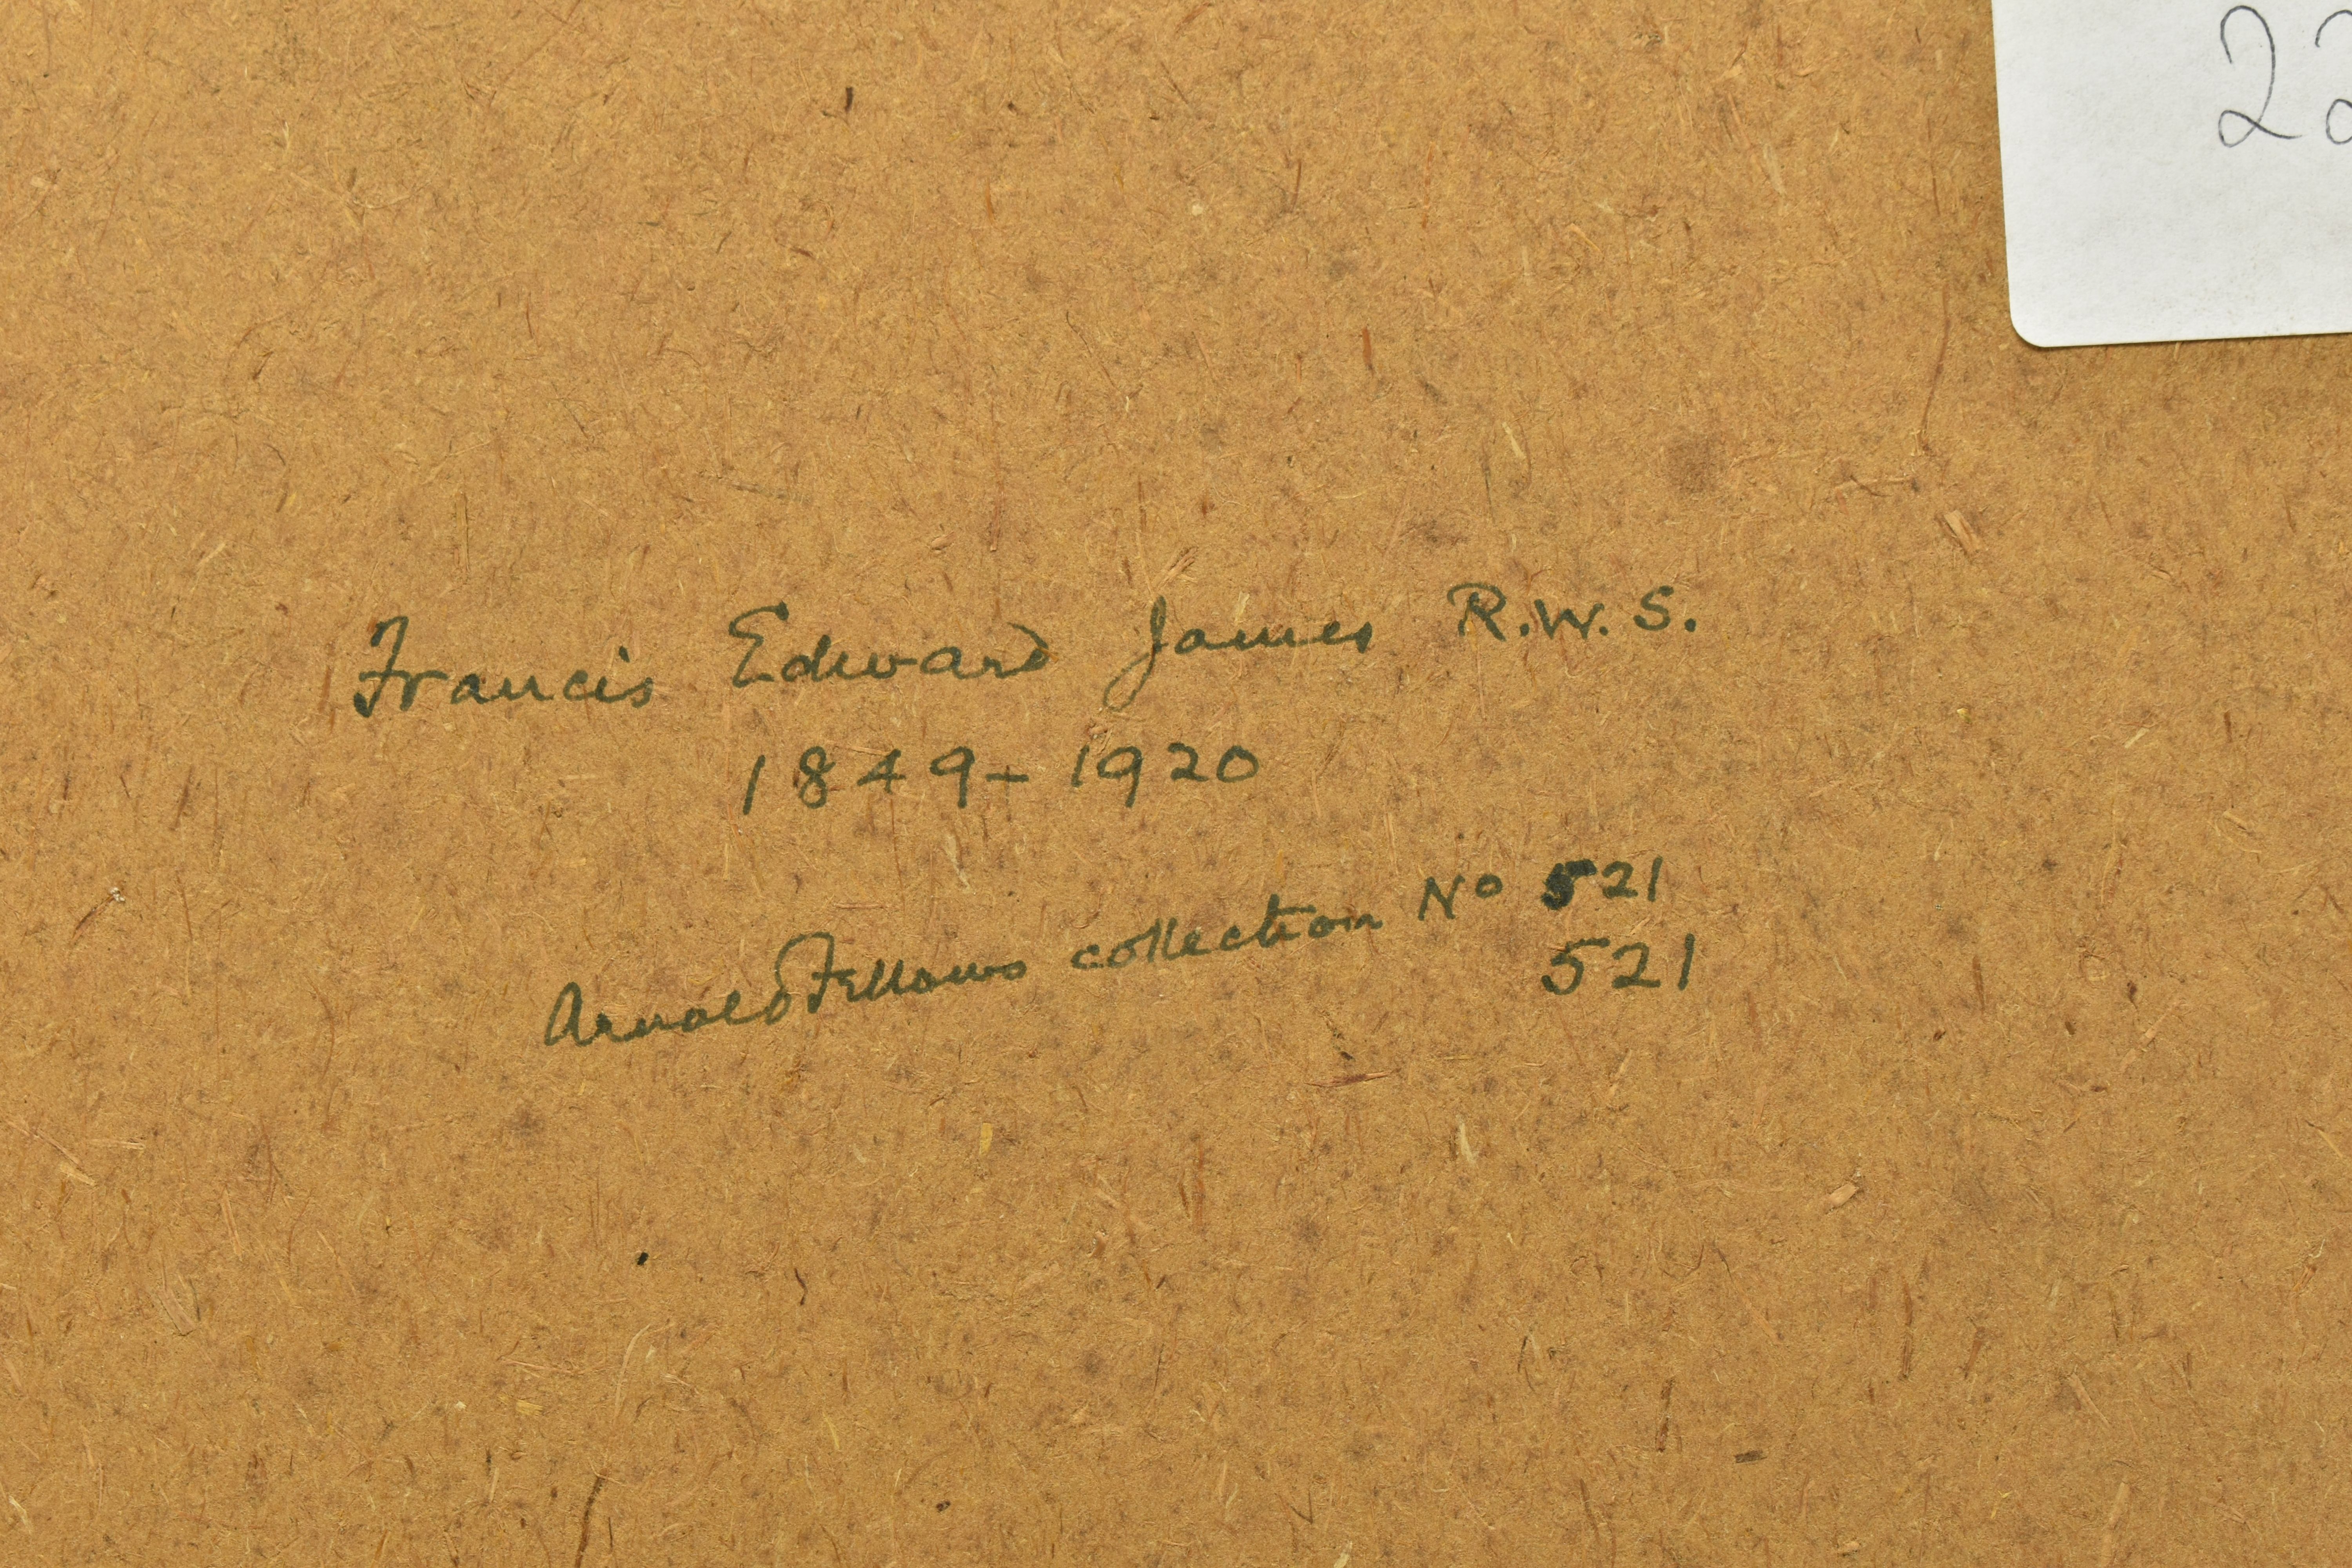 22
Francis Edward James R.W.S.
1849 - 1920
Arnold Fellows collection No 521
521